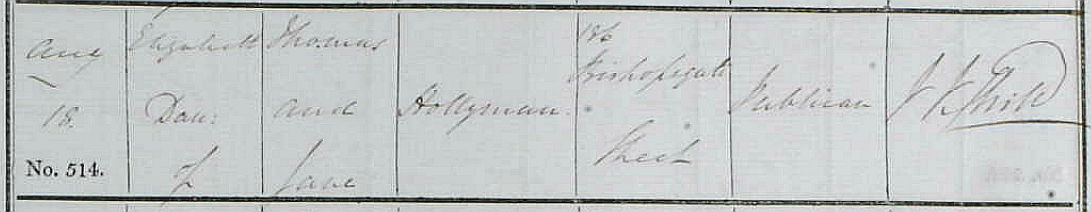 Aug
18.
No. 514.
Elizabeth
Dau:
of
Thomas
and
Jane
Hollyman.
186
Bishopsgate
Street
Publican